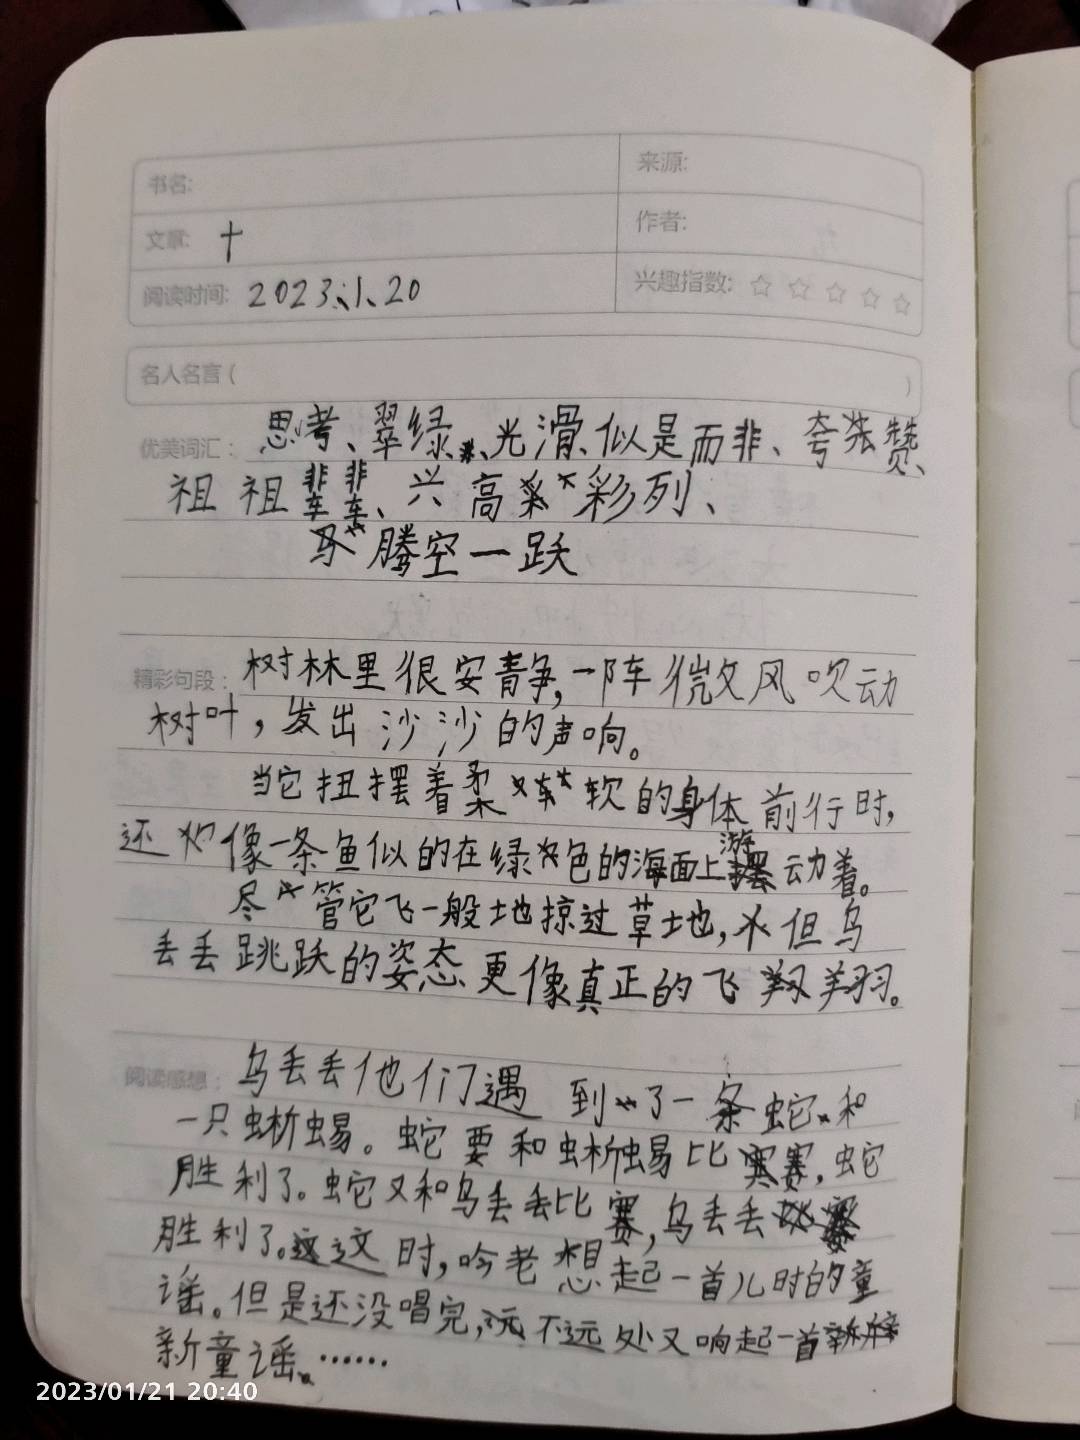 书名:
来源:
文章: 十
作者:
阅读时间: 2023.1.20
兴趣指数: ☆ ☆ ☆ ☆ ☆
名人名言 ( )
优美词汇: 思考、翠绿、光滑、似是而非、夸张赞、
祖祖辈辈、兴高彩列、
腾空一跃
精彩句段: 树林里很安静,一阵微风吹动
树叶,发出沙沙的声响。
当它扭摆着柔软的身体前行时,
还像一条鱼似的在绿色的海面上游动着。
尽管它飞一般地掠过草地,但乌
丢丢跳跃的姿态更像真正的飞翔。
阅读感想: 乌丢丢他们遇到了一条蛇和
一只蜥蜴。蛇要和蜥蜴比赛,蛇
胜利了。蛇又和乌丢丢比赛,乌丢丢
胜利了。这时,吟老想起一首儿时的童
谣。但是还没唱完,不远处又响起一首
新童谣……
2023/01/21 20:40